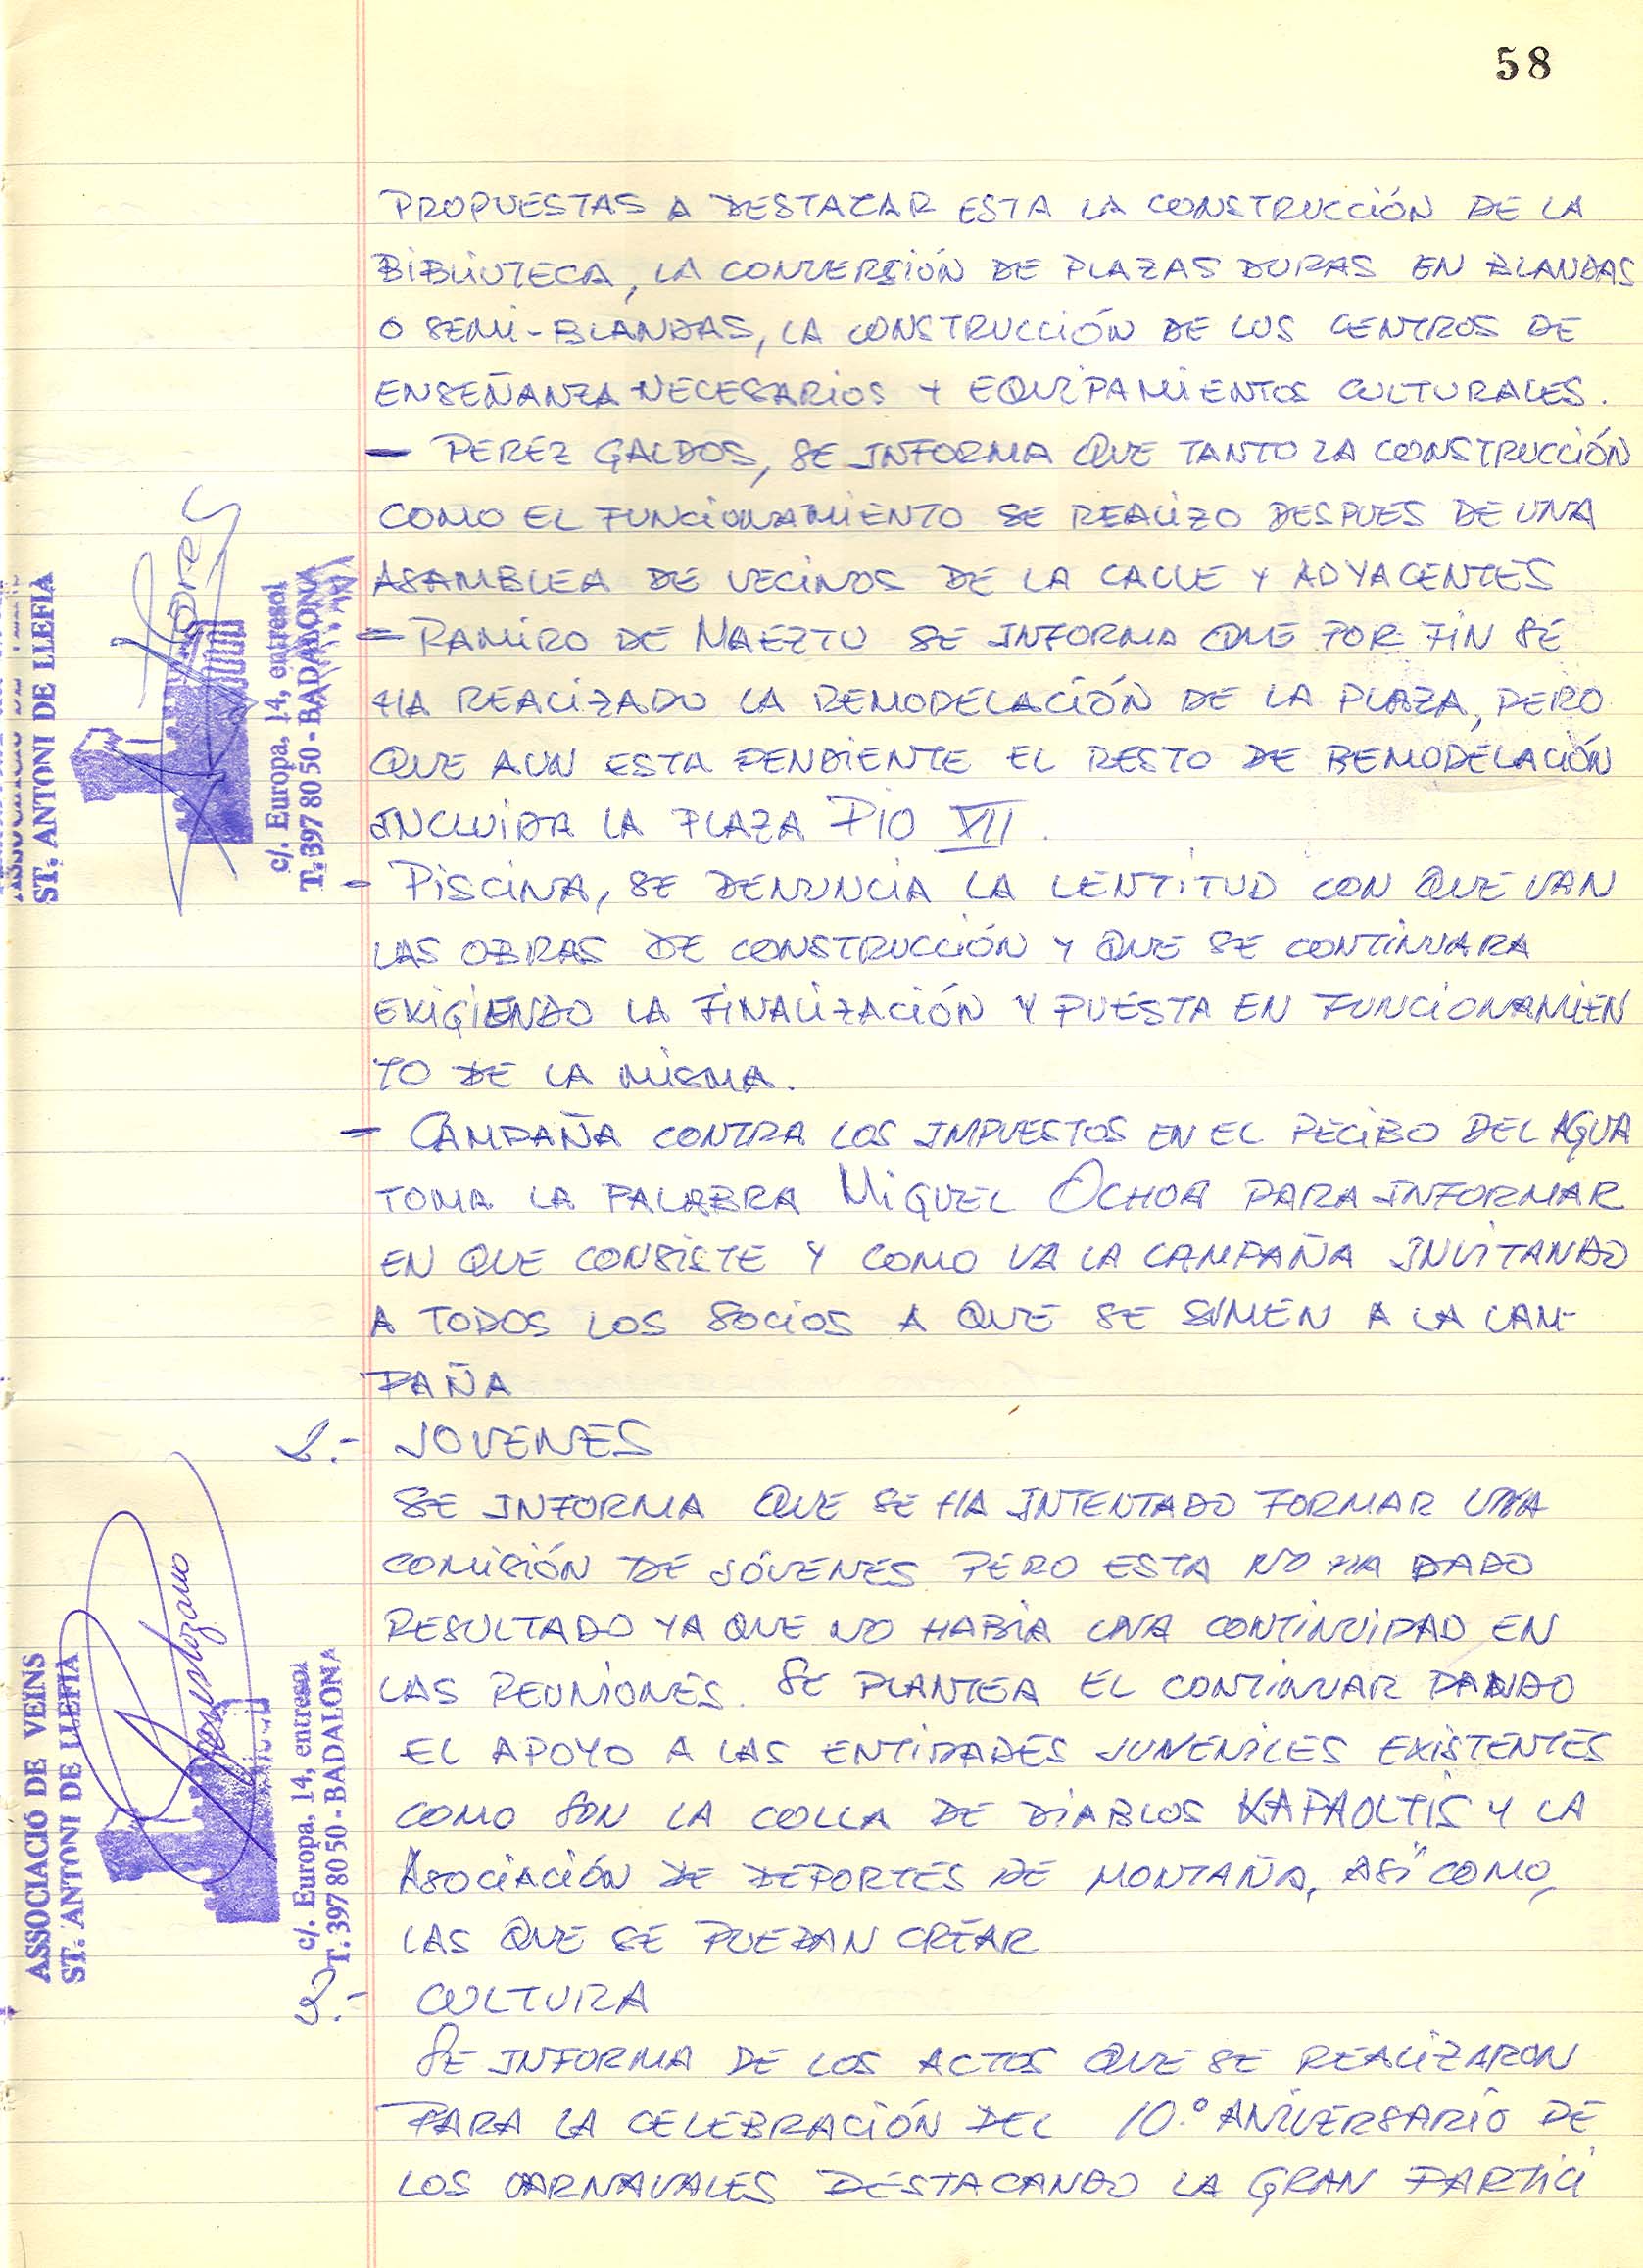 58
PROPUESTAS A DESTACAR ESTA LA CONSTRUCCIÓN DE LA
BIBLIOTECA, LA CONVERSIÓN DE PLAZAS DURAS EN BLANDAS
O SEMI-BLANDAS, LA CONSTRUCCIÓN DE LOS CENTROS DE
ENSEÑANZA NECESARIOS Y EQUIPAMIENTOS CULTURALES.
- PEREZ GALDOS, SE INFORMA QUE TANTO LA CONSTRUCCIÓN
COMO EL FUNCIONAMIENTO SE REALIZO DESPUES DE UNA
ASAMBLEA DE VECINOS DE LA CALLE Y ADYACENTES
- RAMIRO DE MAEZTU SE INFORMA QUE POR FIN SE
HA REALIZADO LA REMODELACIÓN DE LA PLAZA, PERO
QUE AUN ESTA PENDIENTE EL RESTO DE REMODELACIÓN
INCLUIDA LA PLAZA PIO XII.
- PISCINA, SE DENUNCIA LA LENTITUD CON QUE VAN
LAS OBRAS DE CONSTRUCCIÓN Y QUE SE CONTINUARA
EXIGIENDO LA FINALIZACIÓN Y PUESTA EN FUNCIONAMIEN
TO DE LA MISMA.
- CAMPAÑA CONTRA LOS IMPUESTOS EN EL RECIBO DEL AGUA
TOMA LA PALABRA MIGUEL OCHOA PARA INFORMAR
EN QUE CONSISTE Y COMO VA LA CAMPAÑA INVITANDO
A TODOS LOS SOCIOS A QUE SE SUMEN A LA CAM-
PAÑA
2.- JOVENES
SE INFORMA QUE SE HA INTENTADO FORMAR UNA
COMISIÓN DE JÓVENES PERO ESTA NO HA DADO
RESULTADO YA QUE NO HABIA UNA CONTINUIDAD EN
LAS REUNIONES. SE PLANTEA EL CONTINUAR DANDO
EL APOYO A LAS ENTIDADES JUVENILES EXISTENTES
COMO SON LA COLLA DE DIABLOS KAPAOLTIS Y LA
ASOCIACIÓN DE DEPORTES DE MONTAÑA, ASÍ COMO,
LAS QUE SE PUEDAN CREAR
3.- CULTURA
SE INFORMA DE LOS ACTOS QUE SE REALIZARON
PARA LA CELEBRACIÓN DEL 10.º ANIVERSARIO DE
LOS CARNAVALES DESTACANDO LA GRAN PARTICI
ST. ANTONI DE LLEFIÀ
c/. Europa, 14, entresol
T. 397 80 50 - BADALONA
ASSOCIACIÓ DE VEINS
ST. ANTONI DE LLEFIÀ
c/. Europa, 14, entresol
T. 397 80 50 - BADALONA